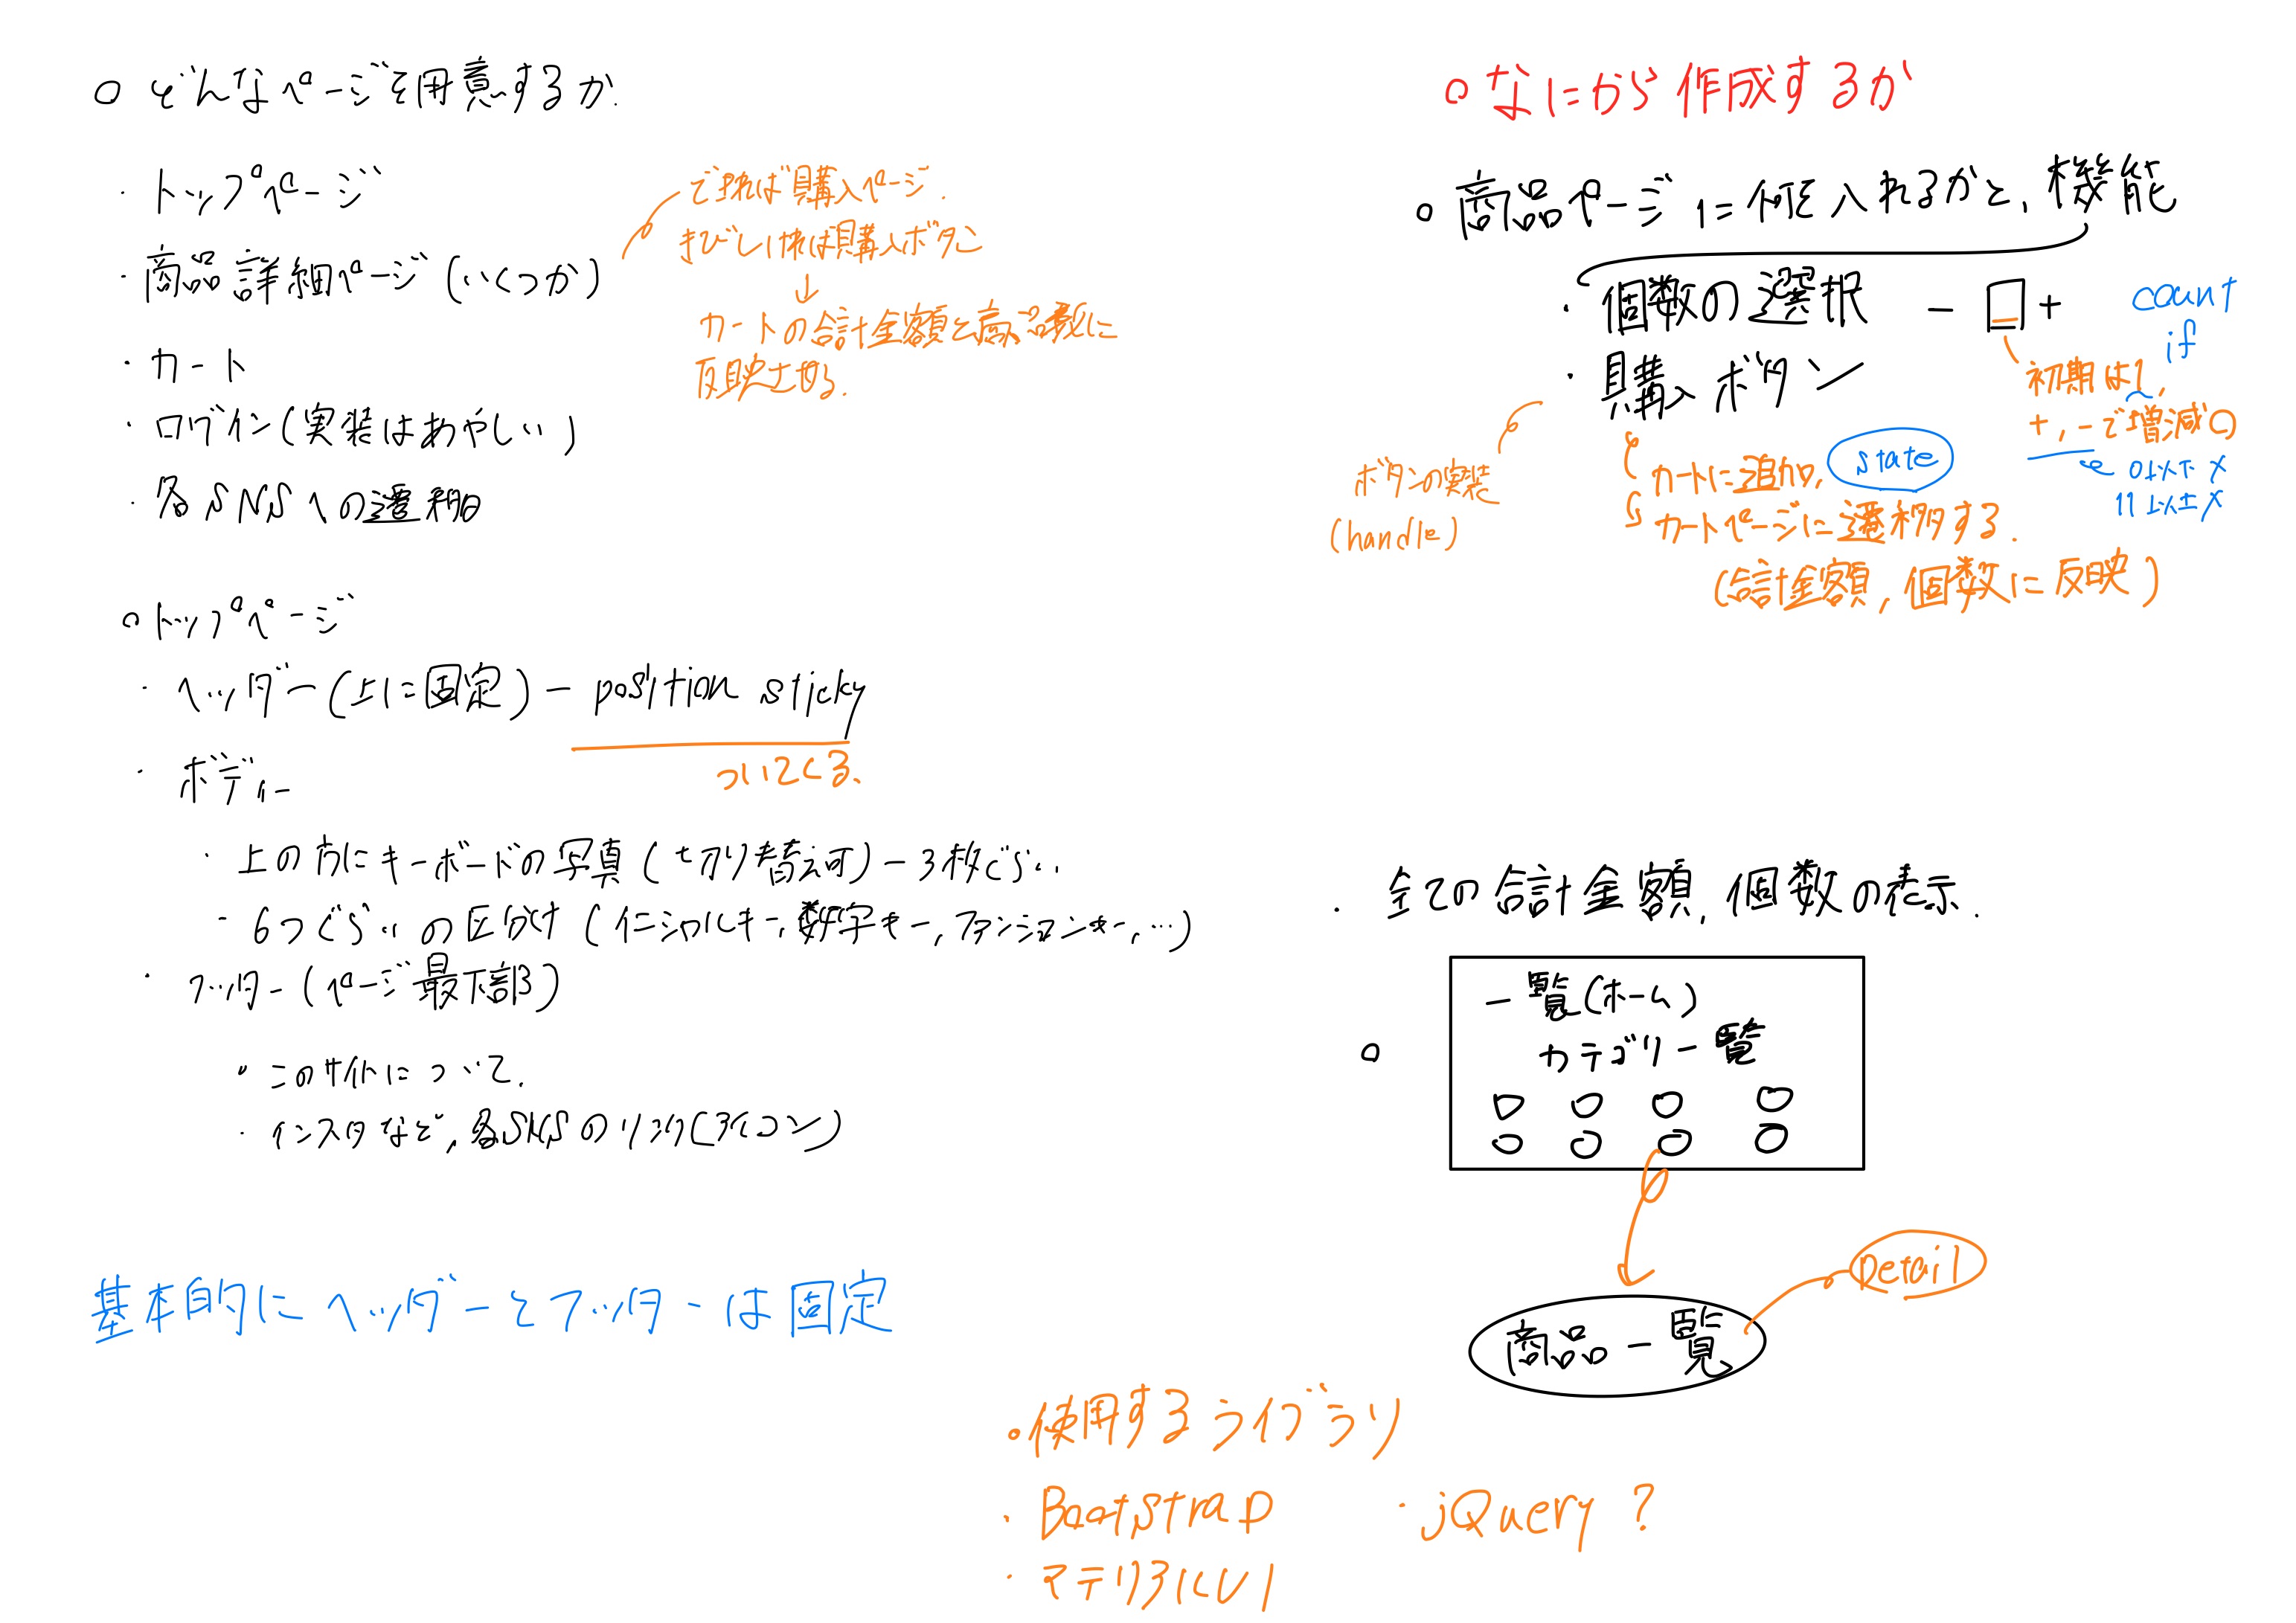 ○どんなページを用意するか.
・トップページ
・商品詳細ページ(いくつか)
できれば購入ページ.
きびしければ購入ボタン
↓
カートの合計金額と商品数に
反映させる.
・カート
・ログイン(実装はあやしい)
・各SNSへの遷移
○トップページ
・ヘッダー(上に固定)ー position sticky
ついてくる.
・ボディー
・上の方にキーボードの写真(切り替え可)ー3枚ぐらい
・6つぐらいの区分け(イニシャルキー,数字キー,ファンションキー,…)
・フッター(ページ最下部)
・このサイトについて.
・インスタなど,各SNSのリンク(アイコン)
基本的にヘッダーとフッターは固定
○なにから作成するか
○商品ページに何を入れるかと,機能
・個数の選択 － □ ＋
count
if
初期は1,
+,－で増減○
0以下×
11以上×
・購入ボタン
ボタンの実装
(handle)
カートに追加,
state
カートページに遷移する.
(合計金額,個数に反映)
・全ての合計金額,個数の表示.
○
一覧(ホーム)
カテゴリ一覧
商品一覧
Detail
○使用するライブラリ
・Bootstrap ・jQuery?
・マテリアルUI